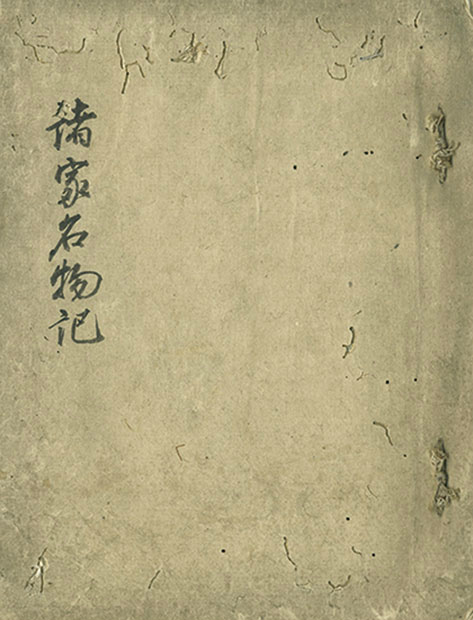 諸家名物記